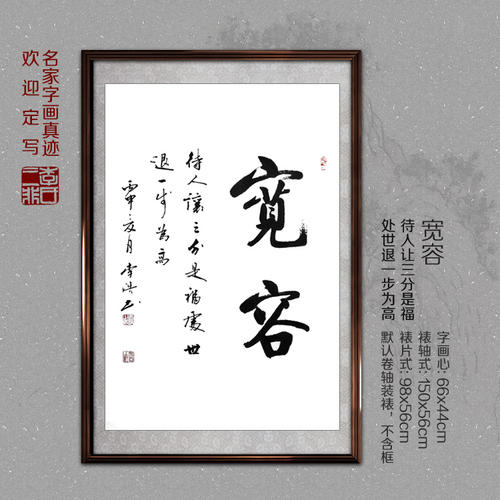 名家字画真迹
欢迎定写
寬容
待人讓三分是福處世
退一步為高
丙申亥月李浩书
宽容
待人让三分是福
处世退一步为高
字画心:66x44cm
裱轴式:150x56cm
裱片式:98x56cm
默认卷轴装裱,不含框